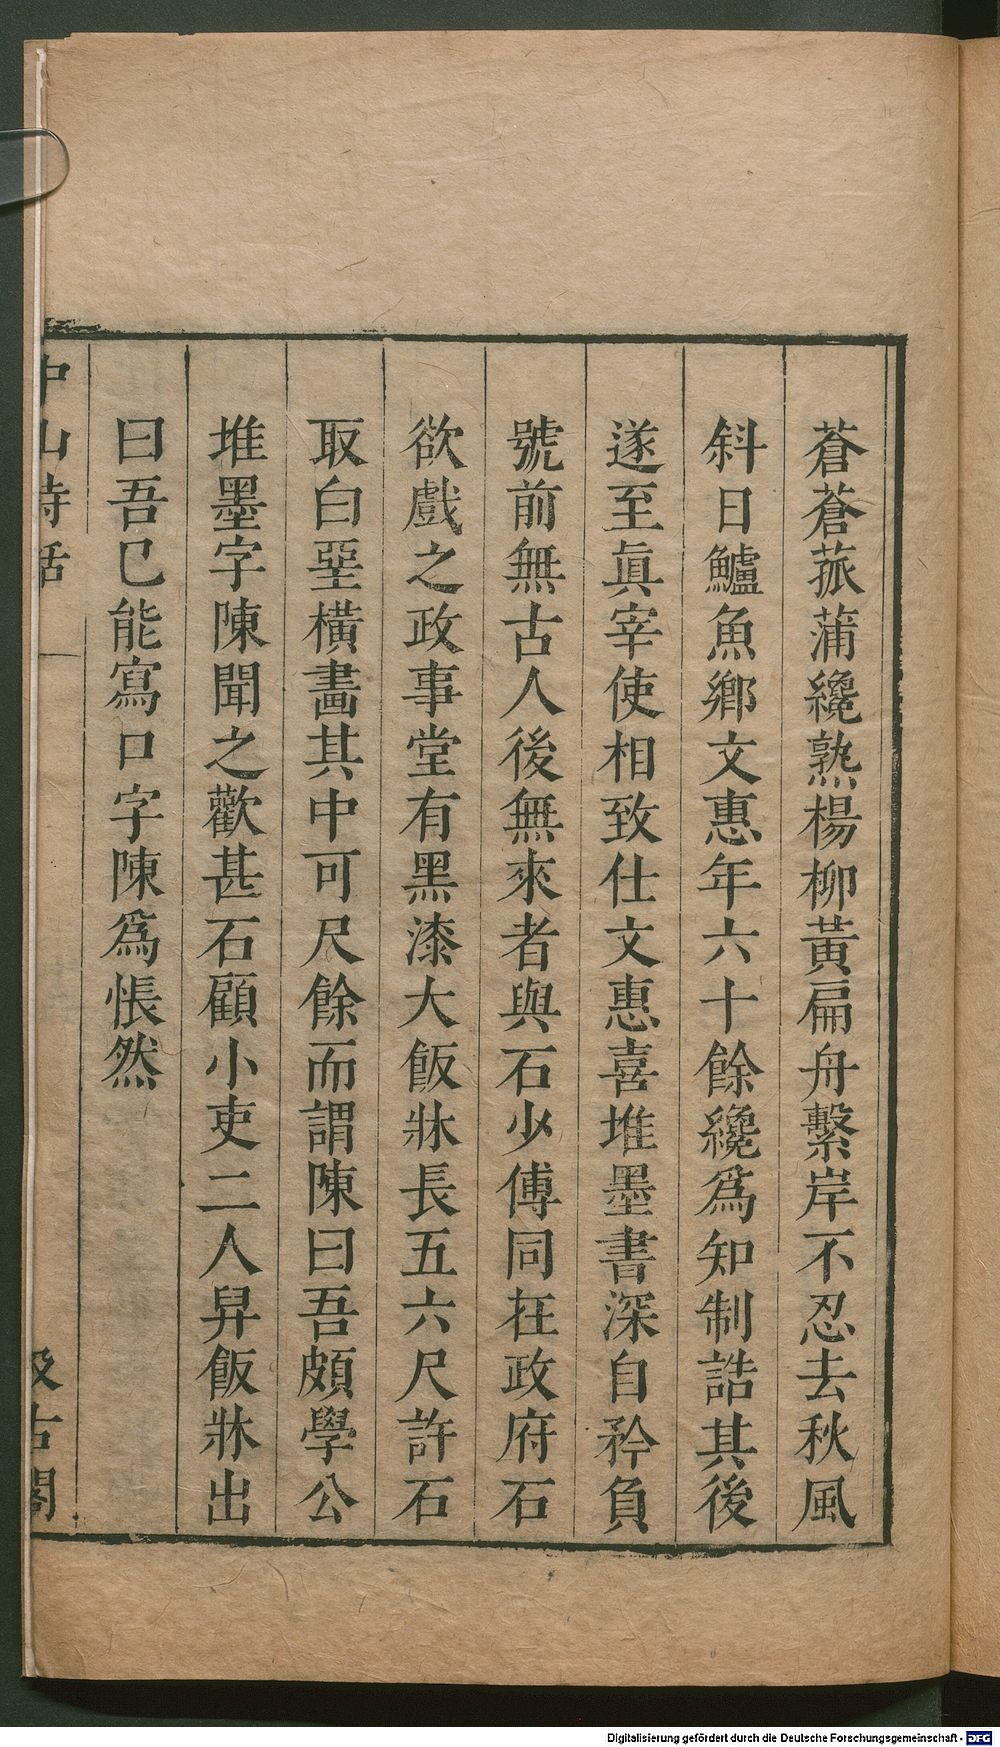 蒼蒼菰蒲纔熟楊柳黃扁舟繫岸不忍去秋風
斜日鱸魚鄉文惠年六十餘纔爲知制誥其後
遂至眞宰使相致仕文惠喜堆墨書深自矜負
號前無古人後無來者與石少傅同在政府石
欲戲之政事堂有黑漆大飯牀長五六尺許石
取白堊橫畵其中可尺餘而謂陳曰吾頗學公
堆墨字陳聞之歡甚石顧小吏二人舁飯牀出
曰吾已能寫口字陳爲悵然
中山詩話 一
汲古閣
Digitalisierung gefördert durch die Deutsche Forschungsgemeinschaft - DFG